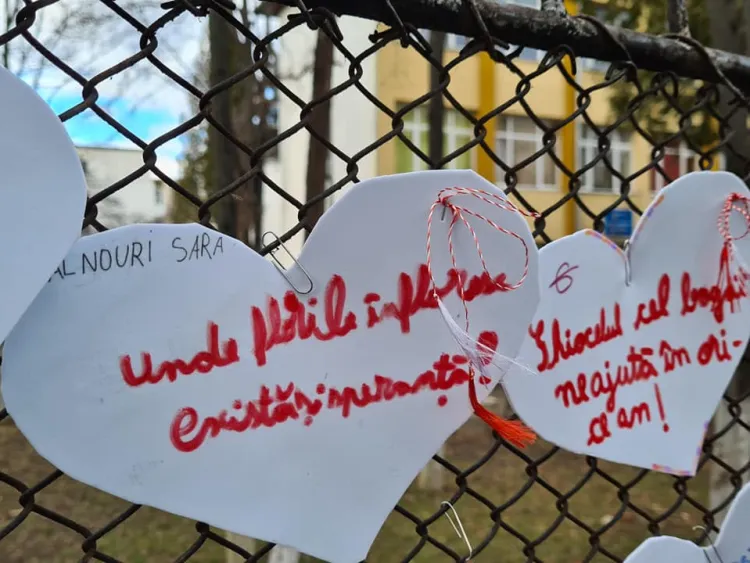 AL NOURI SARA
Unde florile înfloresc
există și speranță!
Ghiocelul cel
ne ajută în ori-
ce an!